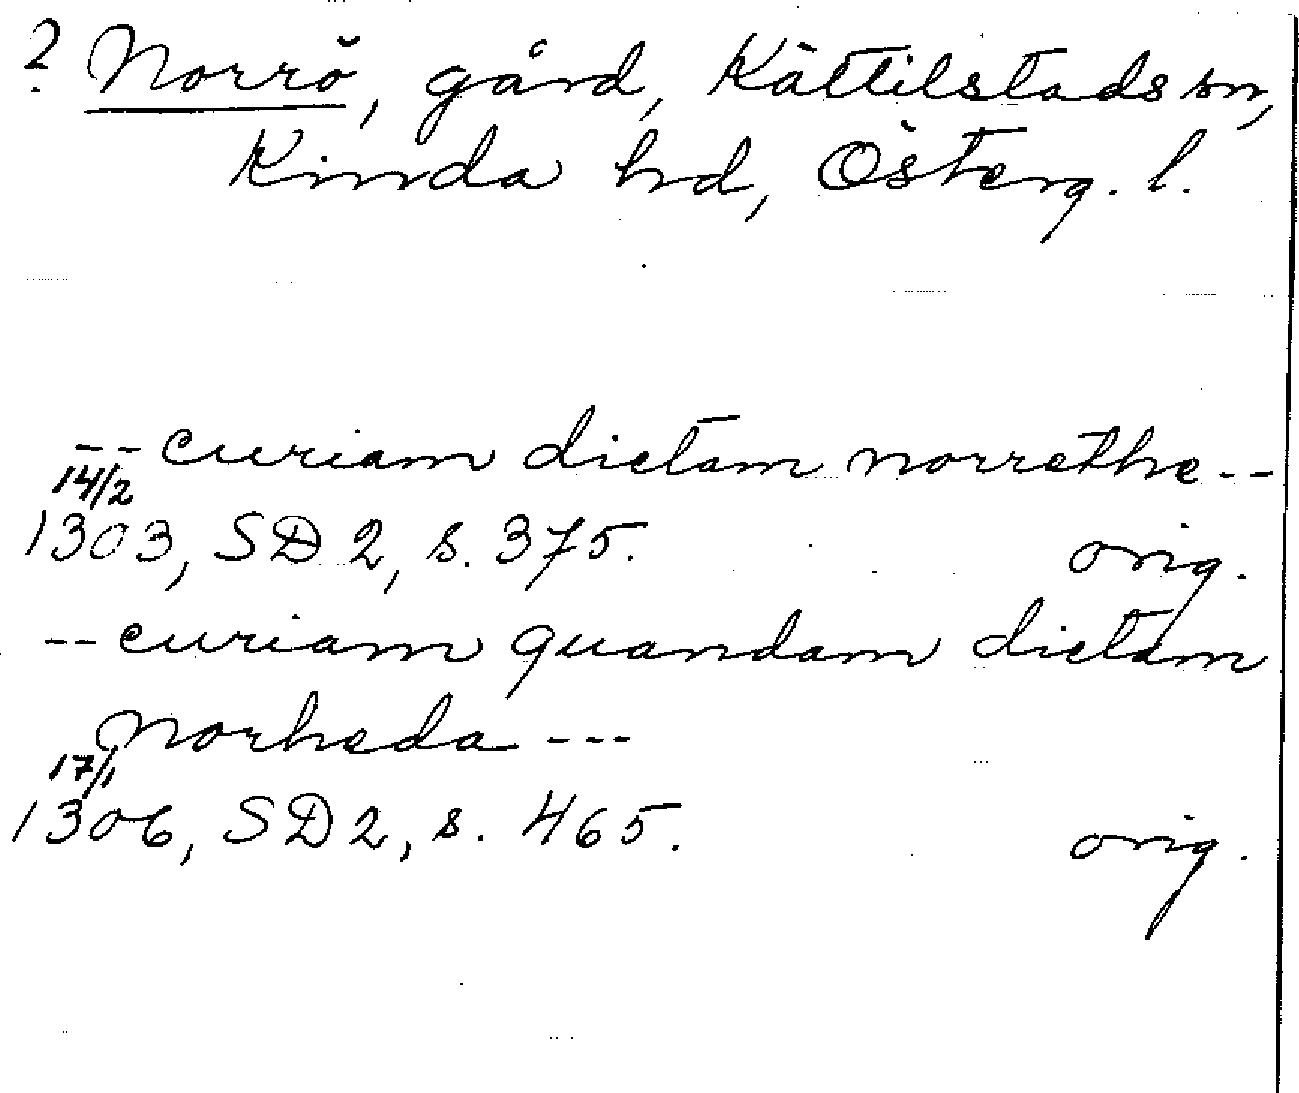 ? Norrö, gård, Kättilstads sn,
Kinda hd, Österg. l.
-- curiam dictam norrethe --
14/2
1303, SD 2, s. 375. orig.
-- curiam quandam dictam
Norheda ---
17/1
1306, SD 2, s. 465. orig.